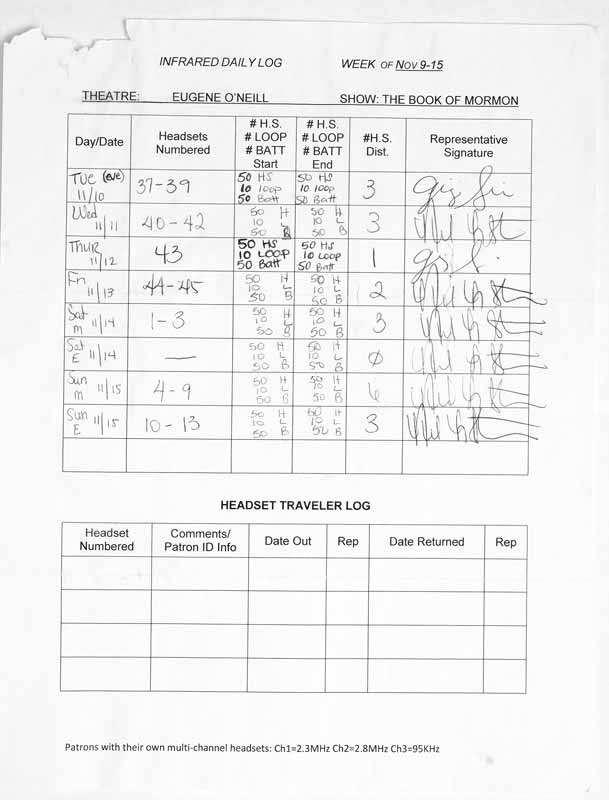 INFRARED DAILY LOG WEEK OF NOV 9-15
THEATRE: EUGENE O'NEILL SHOW: THE BOOK OF MORMON
Day/Date Headsets Numbered # H.S. # LOOP # BATT Start # H.S. # LOOP # BATT End #H.S. Dist. Representative Signature
Tue (eve) 11/10 37-39 50 HS 10 loop 50 Batt 50 HS 10 loop 50 Batt 3
Wed 11/11 40-42 50 H 10 L 50 B 50 H 10 L 50 B 3
Thur 11/12 43 50 HS 10 LOOP 50 Batt 50 HS 10 LOOP 50 Batt 1
Fri 11/13 44-45 50 H 10 L 50 B 50 H 10 L 50 B 2
Sat M 11/14 1-3 50 H 10 L 50 B 50 H 10 L 50 B 3
Sat E 11/14 — 50 H 10 L 50 B 50 H 10 L 50 B Ø
Sun M 11/15 4-9 50 H 10 L 50 B 50 H 10 L 50 B 6
Sun E 11/15 10-13 50 H 10 L 50 B 50 H 10 L 50 B 3
HEADSET TRAVELER LOG
Headset Numbered Comments/ Patron ID Info Date Out Rep Date Returned Rep
Patrons with their own multi-channel headsets: Ch1=2.3MHz Ch2=2.8MHz Ch3=95KHz